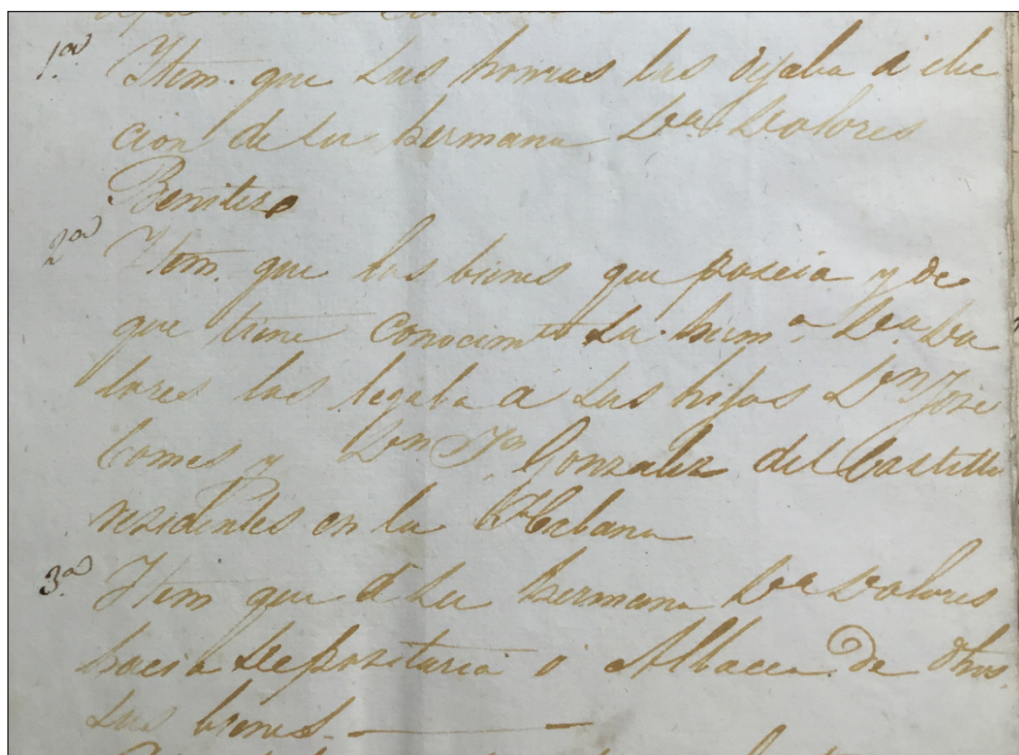 1ª Item. que sus honras las dejaba á elec
cion de su hermana Dª Dolores
Benitez
2ª Item. que los bienes que poseia y de
que tiene conocimto su herm.ª Dª. Do
lores los legaba á sus hijos Dn Jose
Gomes y Dn Gonzalez del Castillo
residentes en la Habana
3ª Item que á su hermana Dª Dolores
hacia depositaria ó Albacea de dhos.
sus bienes.